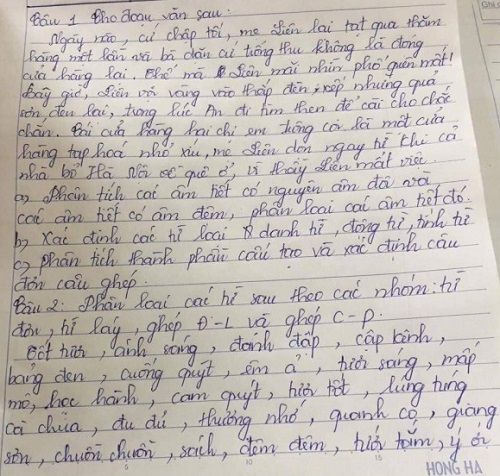 Câu 1 Cho đoạn văn sau:
Ngày nào, cứ chập tối, mẹ Liên lại tạt qua thăm
hàng một lần và bà dặn cứ trống thu không là đóng
cửa hàng lại. Thế mà Liên mải nhìn phố quên mất!
Bây giờ, Liên vội vàng vào thắp đèn, xếp những quả
sơn đen lại, trong lúc An đi tìm then để cài cho chắc
chắn. Cái cửa hàng hai chị em trông coi là một cửa
hàng tạp hoá nhỏ xíu, mẹ Liên dọn ngay từ khi cả
nhà bỏ Hà Nội về quê ở, vì thầy Liên mất việc
a, Phân tích các âm tiết có nguyên âm đôi và
các âm tiết có âm đệm, phân loại các âm tiết đó.
b, Xác định các từ loại danh từ, động từ, tính từ
c, phân tích thành phần cấu tạo và xác định câu
đơn câu ghép.
Câu 2: Phân loại các từ sau theo các nhóm: từ
đơn, từ láy, ghép Đ-L và ghép C-P.
ánh, sáng, đánh đập, cập kênh,
bảng đen, cuống quýt, êm ả, sáng, mấp
mô, học hành, cam quýt, tốt, lúng túng
cà chua, đu đủ, thương nhớ, quanh co, giảng
sơn, chuồn chuồn, sách, đêm đêm, ý ới
HONG HA